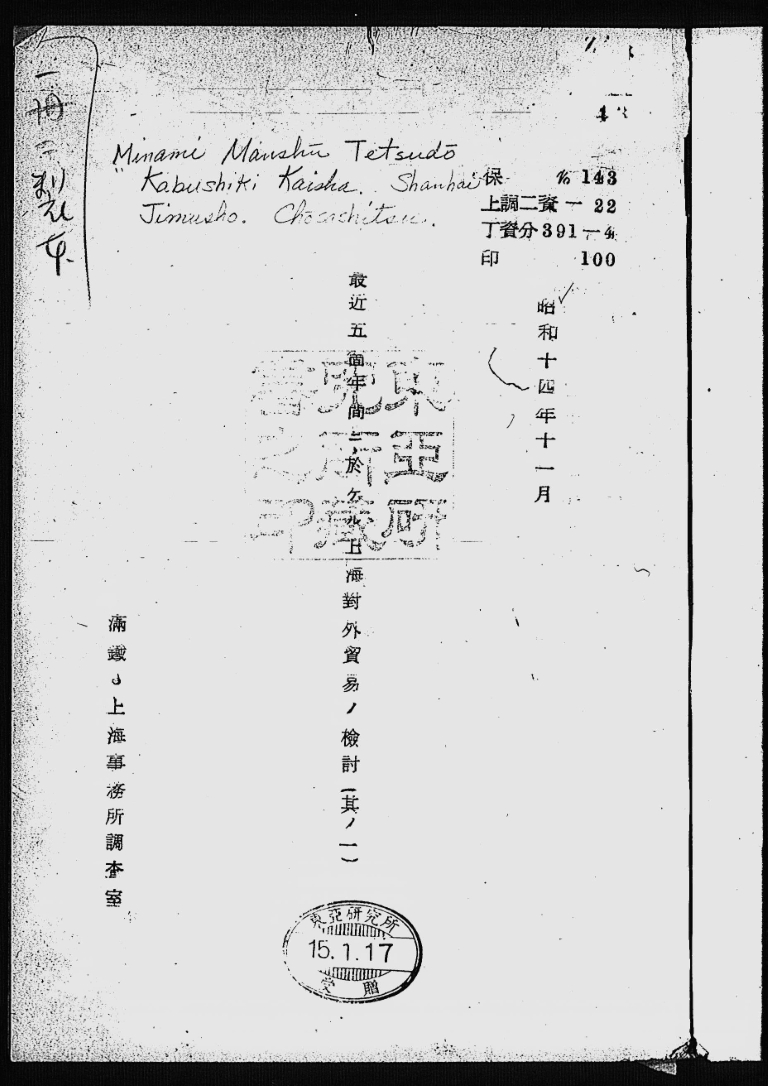 "Minami Manshū Tetsudō
Kabushiki Kaisha. Shanhai
Jimusho. Chōsashitsu.
保 № 143
上調二資 — 22
丁資分391—4
印 100
昭和十四年十一月
最近五箇年間ニ於ケル上海對外貿易ノ檢討(其ノ一)
滿鐵・上海事務所調査室
東亞研究所藏書之印
東亞研究所
15.1.17
受贈
一冊ニ製本